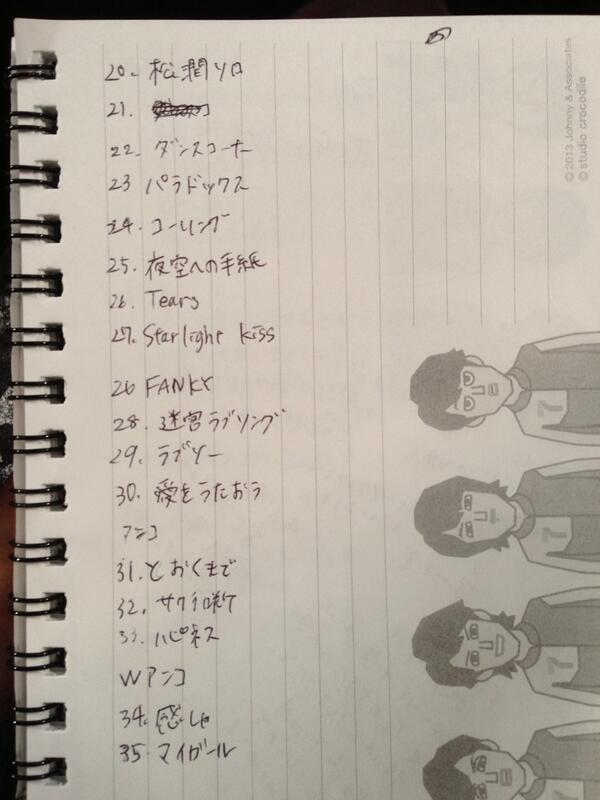 20. 松潤ソロ
21.
22. ダンスコーナー
23 パラドックス
24. コーリング
25. 夜空への手紙
26. Tears
27. Starlight kiss
26 FANKY
28. 迷宮ラブソング
29. ラブソー
30. 愛をうたおう
アンコ
31. とおくまで
32. サクラ咲ケ
33. ハピネス
Wアンコ
34. 感しゃ
35. マイガール
© 2013 Johnny & Associates
© studio crocodile
7
7
7